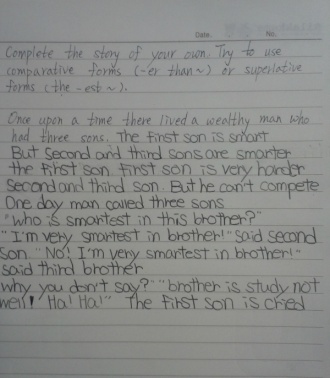 Date. No.
Complete the story of your own. Try to use
comparative forms (-er than ~) or superlative
forms (the -est ~).
Once upon a time there lived a wealthy man who
had three sons. The first son is smart
But second and third sons are smarter
the first son. first son is very harder
second and third son. But he can't compete
One day man called three sons
"who is smartest in this brother?"
"I'm very smartest in brother!" said second
son. "No! I'm very smartest in brother!"
said third brother
why you don't say?" "brother is study not
well! Ha! Ha!" The first son is cried